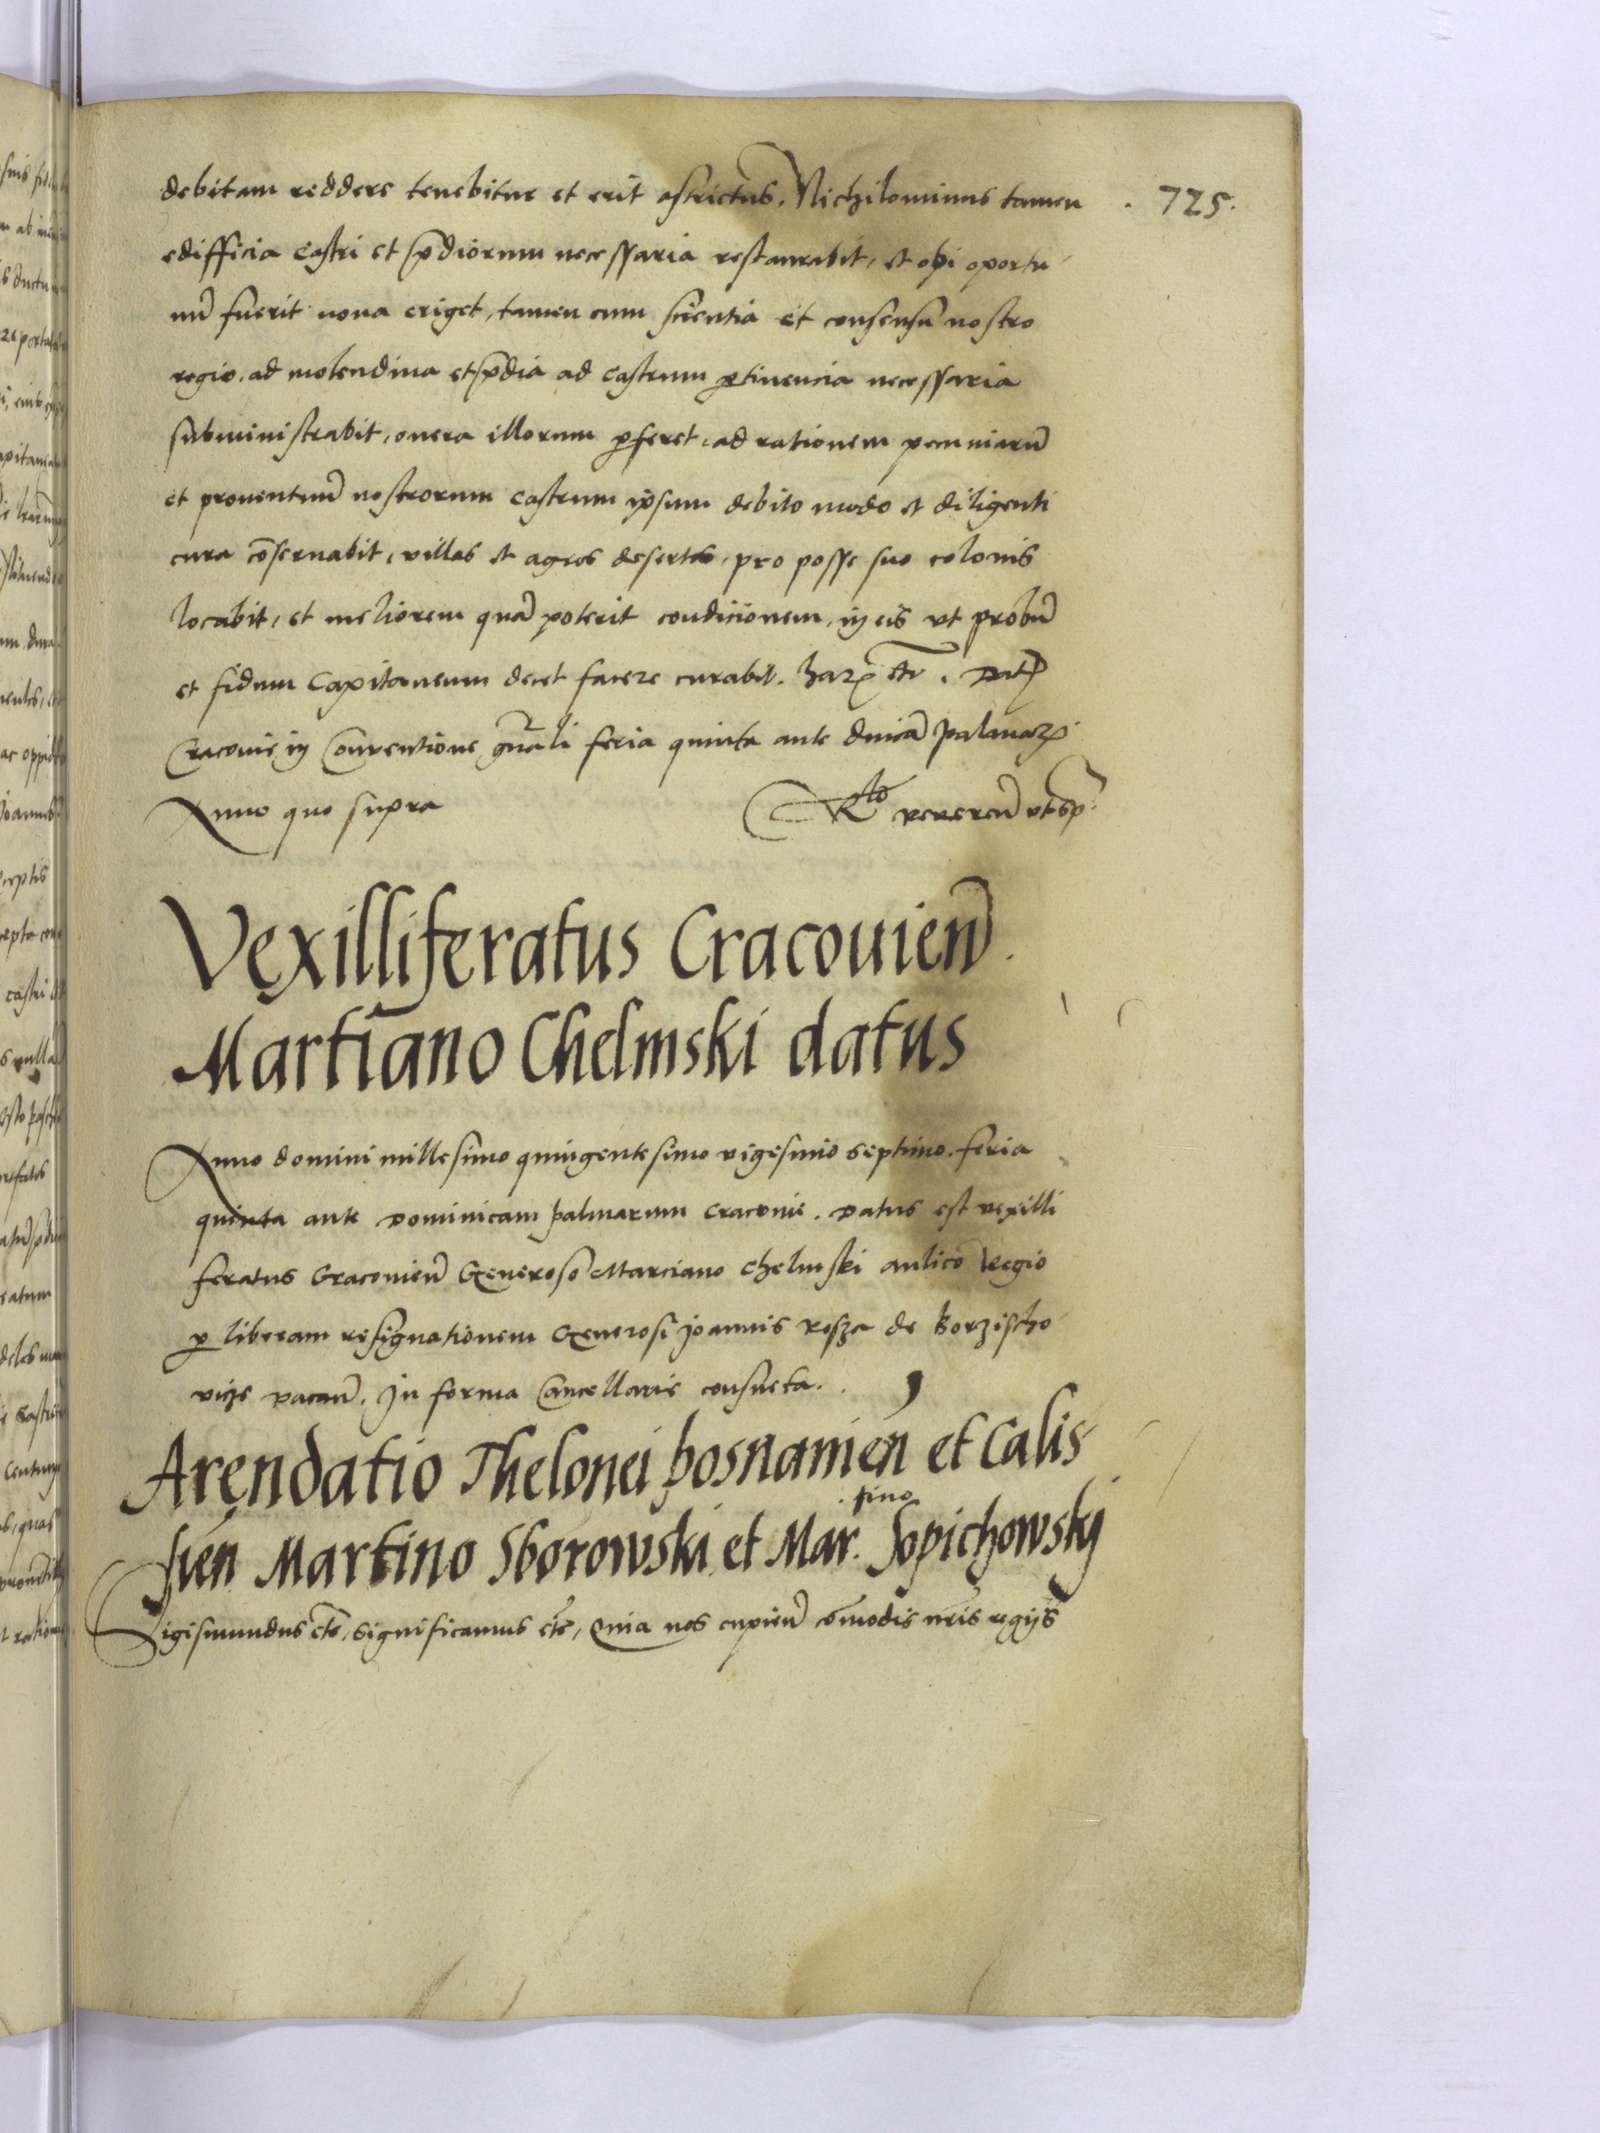 debitam reddere tenebitur et erit astrictus. Nichilominus tamen
. 725.
edifficia castri et p̄diorum necessaria restaurabit, et ubi oportu
nū fuerit nova eriget, tamen cum scientia et consensu nostro
regio. ad molendina et p̄dia ad castrum ꝑtinencia necessaria
subministrabit, onera illorum ꝑferet, ad rationem pecuniarū
et proventuū nostrorum castrum ipsum debito modo et diligenti
cura cōservabit, villas et agros desertos, pro posse suo colonis
locabit, et meliorem quā poterit condicionem, in eis ut probū
et fidum Capitaneum decet facere curabit. harꝝ etc̄. Dat̄
Cracovie in Conventione gn̄ali feria quinta ante dnicā palmarꝝ
Anno quo supra
Rlo reveren̄ ut sp̄.
Vexilliferatus Cracovien̄.
Martiano Chelmski datus
Anno domini millesimo quingentesimo vigesimo septimo. feria
quinta ante dominicam palmarum cracovie. datus est vexilli
feratus Cracovien̄ Generoso Marciano Chelmski aulico Regio
ꝑ liberam resignationem Generosi Joannis Rosza de Borzischo
vicze vacan̄. In forma Cancellarie consueta.
Arendatio Thelonei posnanien̄ et Calis
sien̄ Martino Sborowski et Mar.tino Sopichowsky
Sigismundus etc̄, significamus etc̄, Quia nos cupien̄ cōmodis nr̄is regijs